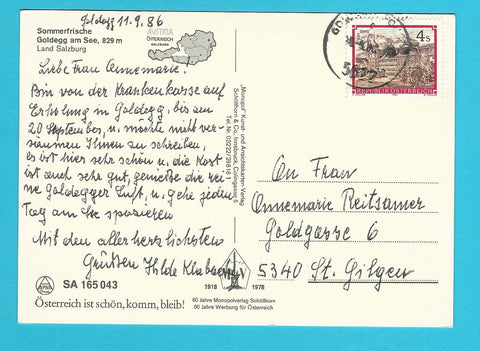 Goldegg 11.9.86
Sommerfrische
Goldegg am See, 829 m
Land Salzburg
AUSTRIA
ÖSTERREICH
SALZBURG
Liebe Frau Annemarie!
Bin von der Krankenkasse auf
Erholung in Goldegg, bis am
20 September, u, möchte nicht ver-
säumen Ihnen zu schreiben,
es ist hier sehr schön u, die Kost
ist auch sehr gut, genieße die rei
ne Goldegger Luft, u, gehe jeden
Tag am See spazieren
Mit den aller herzlichsten
Grüßen Hilde
SA 165 043
Österreich ist schön, komm, bleib!
„Monopol" Kunst- und Ansichtskarten-Verlag
Schöllhorn & Co., Innsbruck, Colingasse 6
Tel. Nr. (05222) 26 8 16 1
1918
1978
60 Jahre Monopolverlag Schöllhorn
60 Jahre Werbung für Österreich
4 s
REPUBLIK ÖSTERREICH
5622
An Frau
Annemarie Reitsamer
Goldgasse 6
5340 St. Gilgen